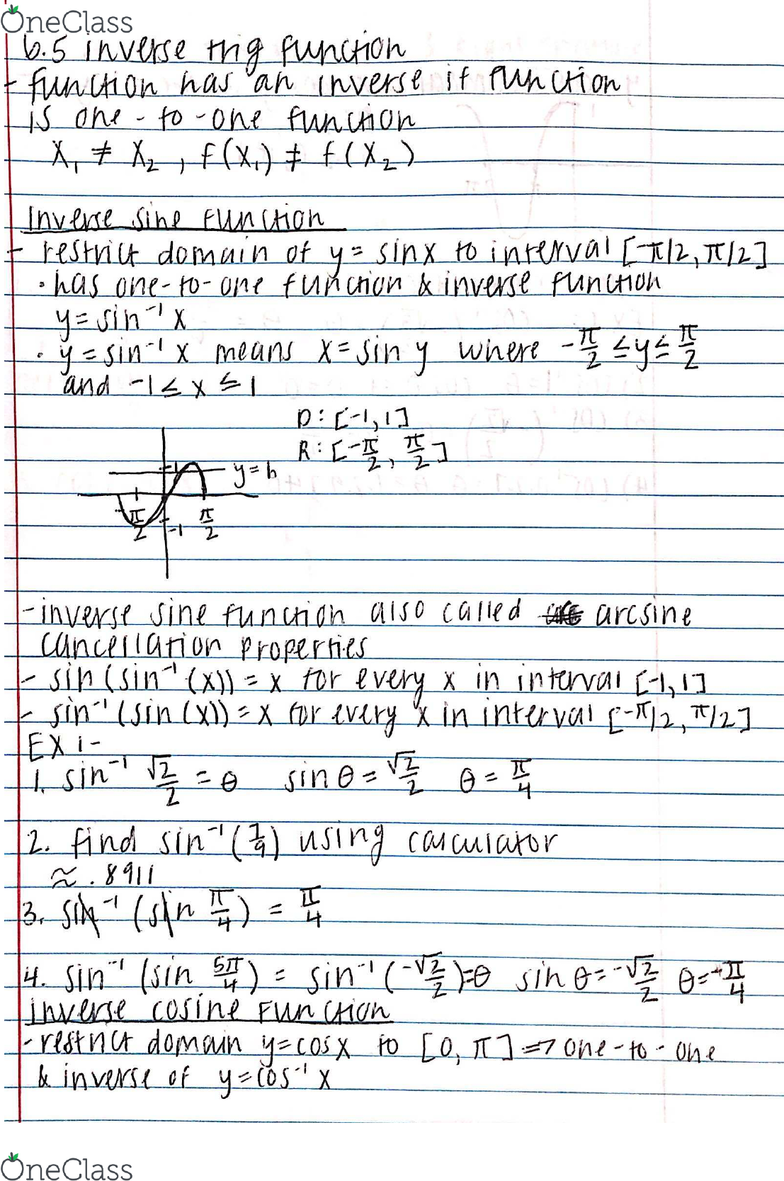 OneClass
6.5 inverse trig function
- function has an inverse if function
is one-to-one function
X₁ ≠ X₂, f(X₁) ≠ f(X₂)
Inverse sine function
- restrict domain of y = sinx to interval [-π/2, π/2]
• has one-to-one function & inverse function
y = sin⁻¹ x
• y = sin⁻¹ x means x = sin y where -π/2 ≤ y ≤ π/2
and -1 ≤ x ≤ 1
D: [-1, 1]
R: [-π/2, π/2]
y = h
1
-π/2 -1 π/2
- inverse sine function also called arcsine
cancellation properties
- sin (sin⁻¹ (x)) = x for every x in interval [-1, 1]
- sin⁻¹ (sin (x)) = x for every x in interval [-π/2, π/2]
EX 1-
1. sin⁻¹ √2/2 = θ sin θ = √2/2 θ = π/4
2. find sin⁻¹ (7/9) using calculator
≈ .8911
3. sin⁻¹ (sin π/4) = π/4
4. sin⁻¹ (sin 5π/4) = sin⁻¹ (-√2/2) = θ sin θ = -√2/2 θ = -π/4
inverse cosine function
- restrict domain y = cosx to [0, π] ⇒ one-to-one
& inverse of y = cos⁻¹ x
OneClass